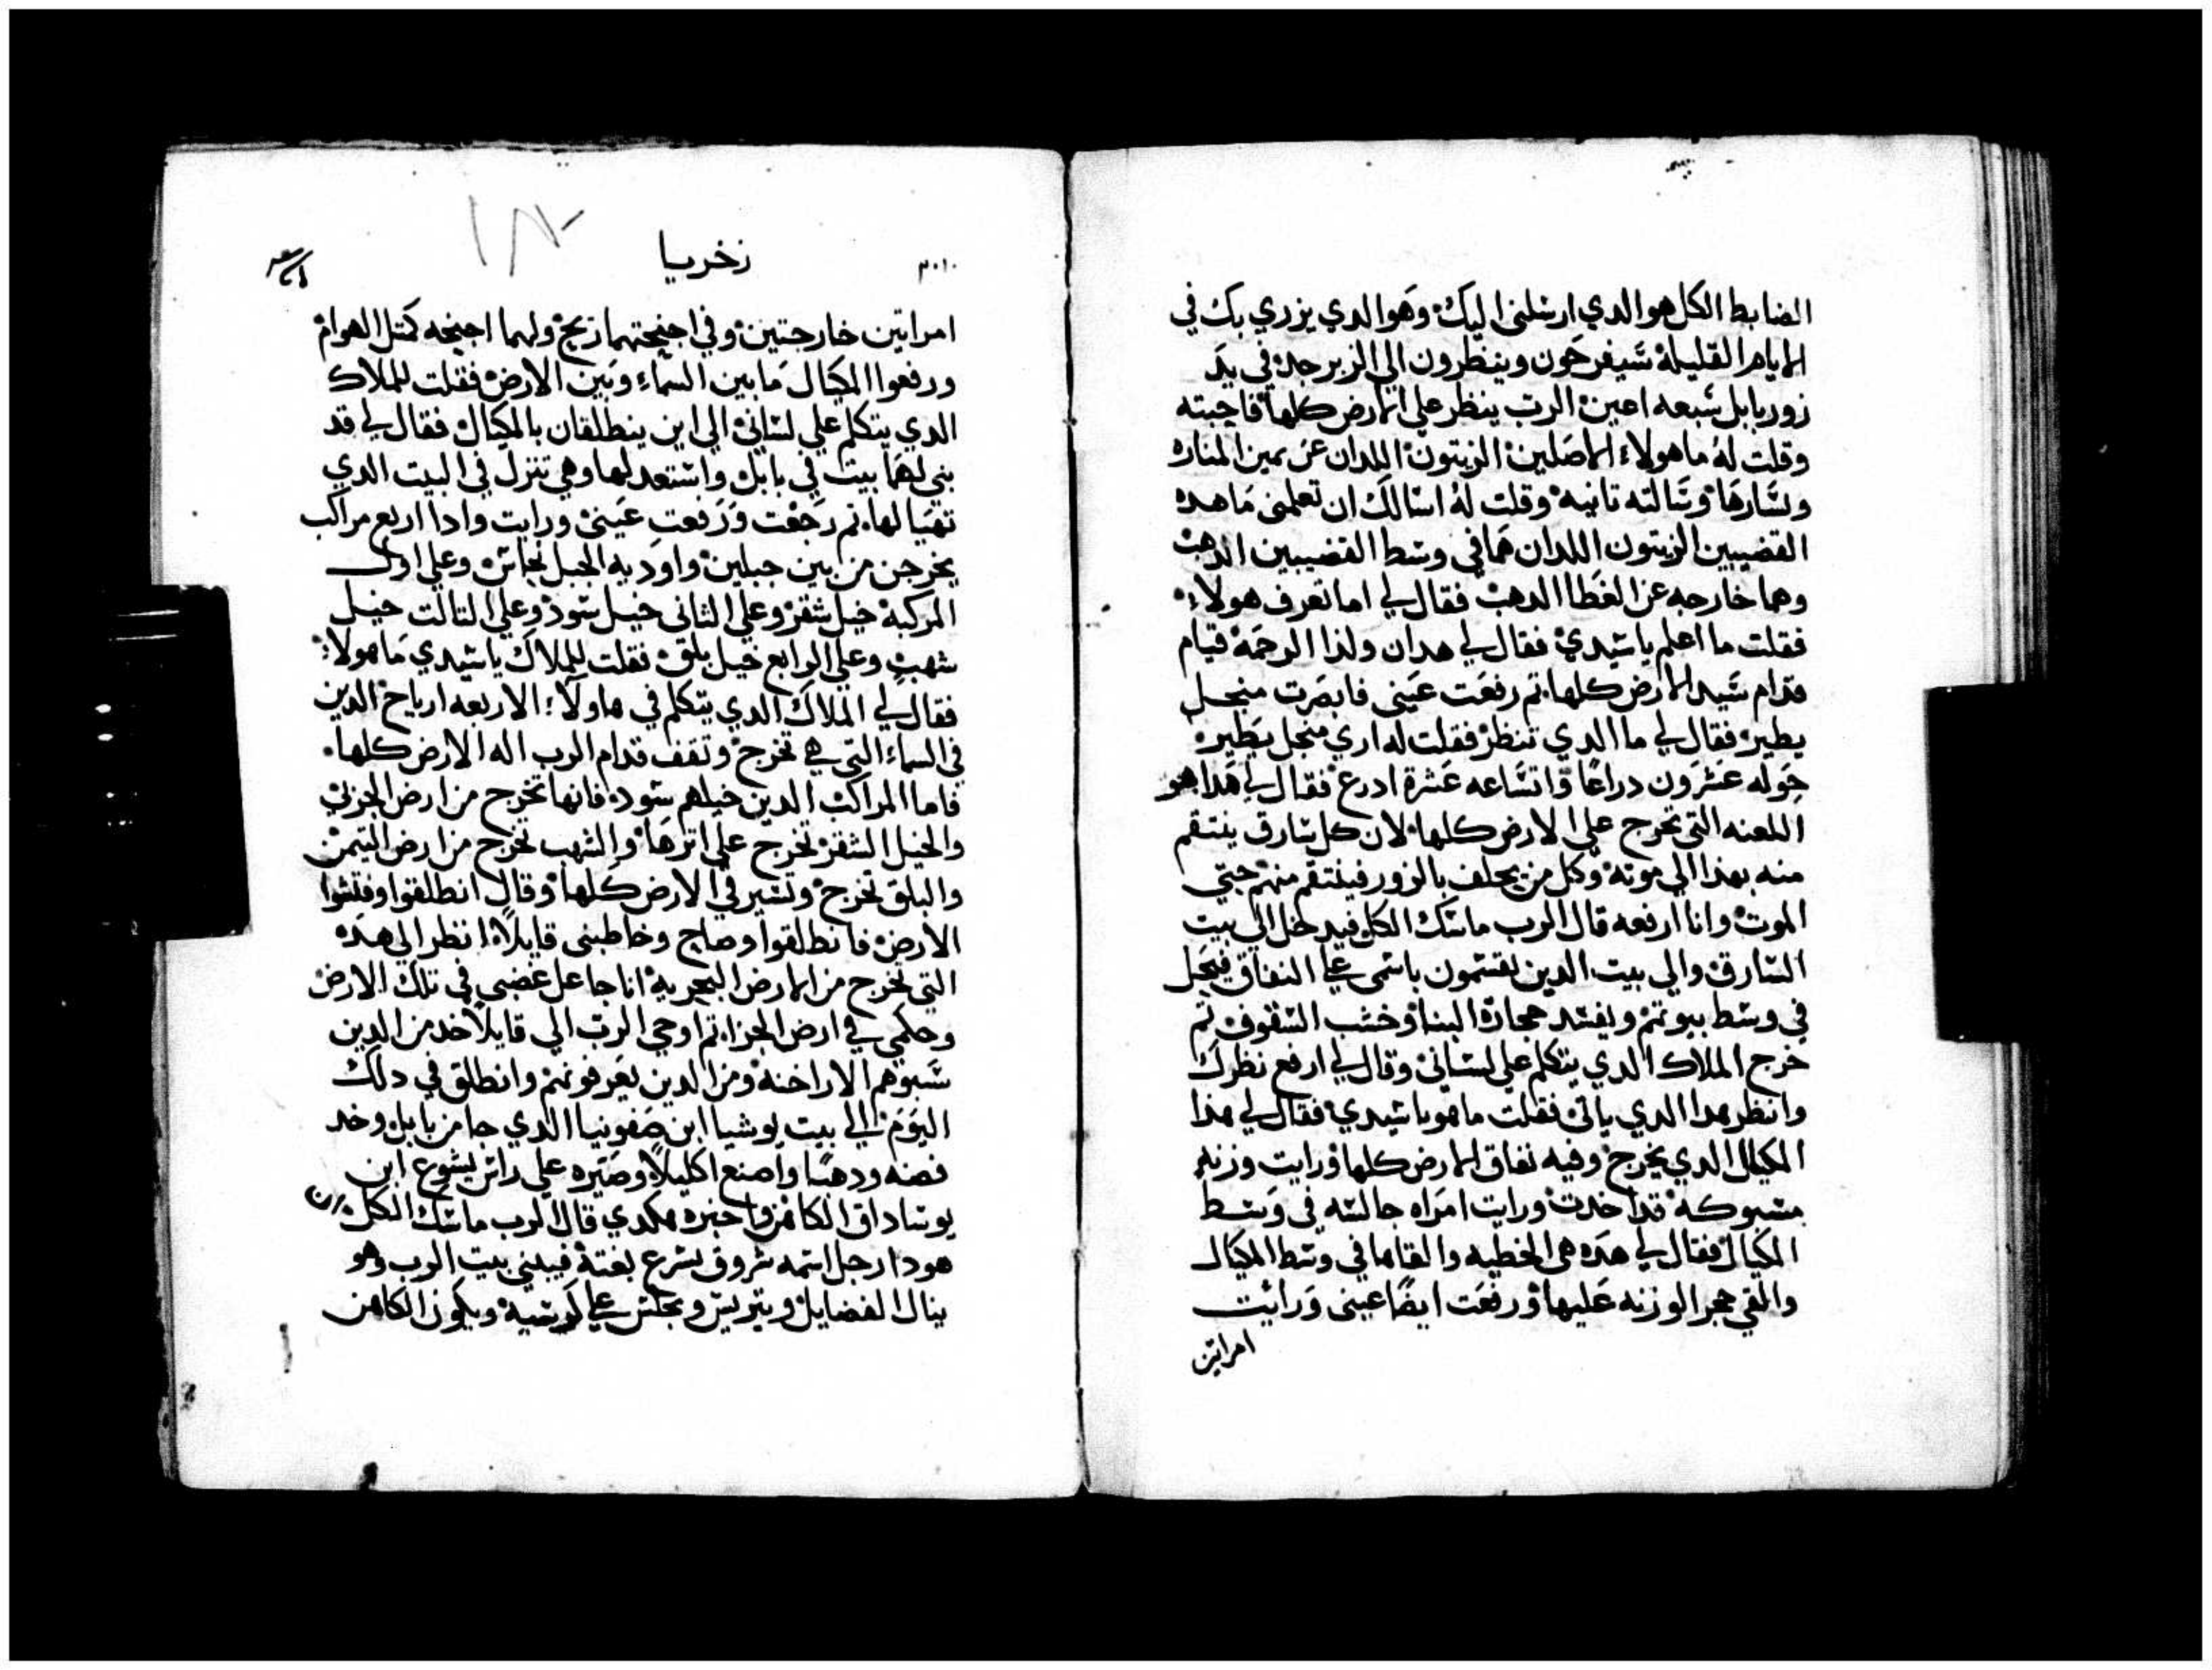 الضابط الكل هو الدي ارسلني اليك وهو الدي يزري بك في
الايام القليلة سيفرحون وينظرون الي الزبرجد في يد
زوربابل سبعه اعين الرب ينظر علي الارض كلها فاجبته
وقلت له ما هولاء الاصلين الزيتون اللدان عن يمين المناره
ويسارها وسالته تانيه وقلت له اسالك ان تعلمني ما هده
القضيبين الزيتون اللدان هما في وسط القضيبين الدهب
وهما خارجه عن الغطا الدهب فقال لي اما تعرف هولاء
فقلت ما اعلم يا سيدي فقال لي هدان ولدا الرحمة قيام
قدام سيد الارض كلها تم رفعت عيني فابصرت منجل
يطير فقال لي ما الدي تنظر فقلت له اري منجل يطير
حوله عشرون دراعا واتساعه عشرة ادرع فقال لي هدا هو
اللعنه التي تخرج علي الارض كلها لان كل سارق ينتقم
منه بهدا الي موته وكل من يحلف بالزور فينتقم منهم حتي
الموت وانا ارفعه قال الرب ماسك الكل فيدخل الي بيت
السارق والي بيت الدين يقسمون باسمي علي النفاق فيحل
في وسط بيوتهم ويفسد حجارة البنا وخشب السقوف تم
خرج الملاك الدي يتكلم علي لساني وقال لي ارفع نظرك
وانظر هدا الدي ياتي فقلت ما هو يا سيدي فقال لي هدا
المكيال الدي يخرج وفيه نفاق الارض كلها ورايت وزنه
مسبوكه قد اخدت ورايت امراه جالسه في وسط
المكيال فقال لي هده هي الخطيه والقاها في وسط المكيال
والقي حجر الوزنه عليها ورفعت ايضا عيني ورايت
امراتين
٣٠١٠
زخريا
امراتين خارجتين وفي اجنحتهما زيح ولهما اجنحه كمتل الهوام
ورفعوا المكيال ما بين السماء وبين الارض فقلت للملاك
الدي يتكلم علي لساني الي اين ينطلقان بالمكيال فقال لي قد
بني لهما بيت في بابل واستعد لها وهي تنزل في البيت الدي
تهيا لها تم رجعت ورفعت عيني ورايت وادا اربع مراكب
يخرجن من بين جبلين واوديه الجبل نحاس وعلي اول
المركبة خيل شقر وعلي الثاني خيل سود وعلي التالت خيل
شهب وعلي الرابع خيل بلق فقلت للملاك يا سيدي ما هولاء
فقال لي الملاك الدي يتكلم في هاولاء الاربعه ارياح الدين
في السماء التي هي تخرج وتقف قدام الرب اله الارض كلها
فاما المراكب الدين خيلهم سود فانها تخرج من ارض الجزي
والخيل الشقر تخرج علي اترها والشهب تخرج من ارض التيمن
والبلق تخرج وتسير في الارض كلها وقال انطلقوا وفتشوا
الارض فانطلقوا وصاح وخاطبني قايلا انظر الي هده
التي تخرج من الارض البحرية انا جاعل غضبي في تلك الارض
وحلمي في ارض الجزا تم اوحي الرب الي قايلا خد من الدين
سبوهم الاراخنه ومن الدين يعرفونهم وانطلق في دلك
اليوم الي بيت يوشيا ابن صفونيا الدي جا من بابل وخد
فضه ودهبا واصنع اكليلا وصيره علي راس يشوع ابن
يوساداق الكاهن واخبره هكدي قال الرب ماسك الكل
هودا رجل اسمه شروق يشرع بغتة فيبني بيت الرب وهو
ينال الفضايل ويتريس ويجلس علي كرسيه ويكون الكاهن